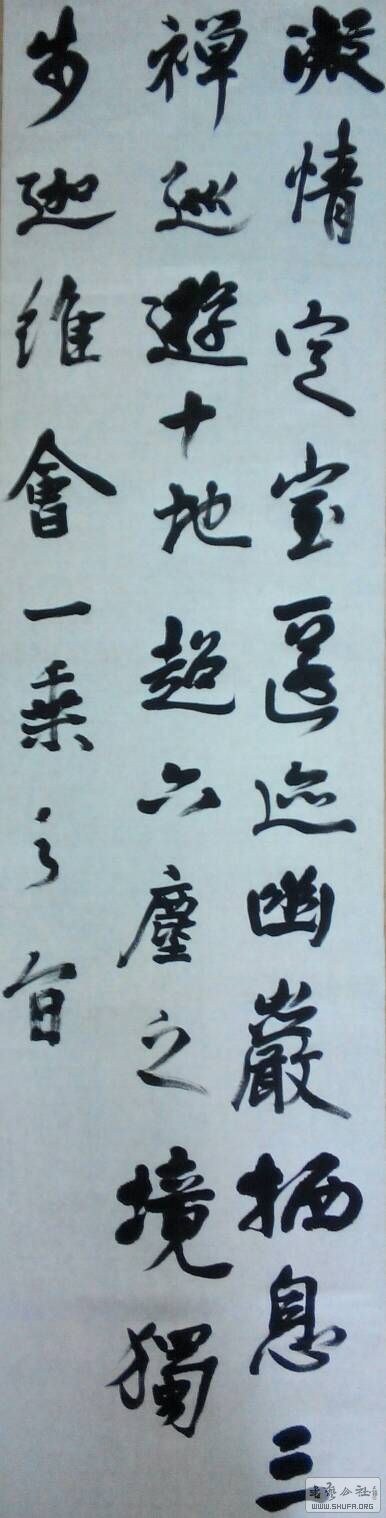 凝情定室匿迹幽巖栖息三
禅巡遊十地超六塵之境獨
步迦維會一乘之旨
书艺公社
WWW.SHUFA.ORG